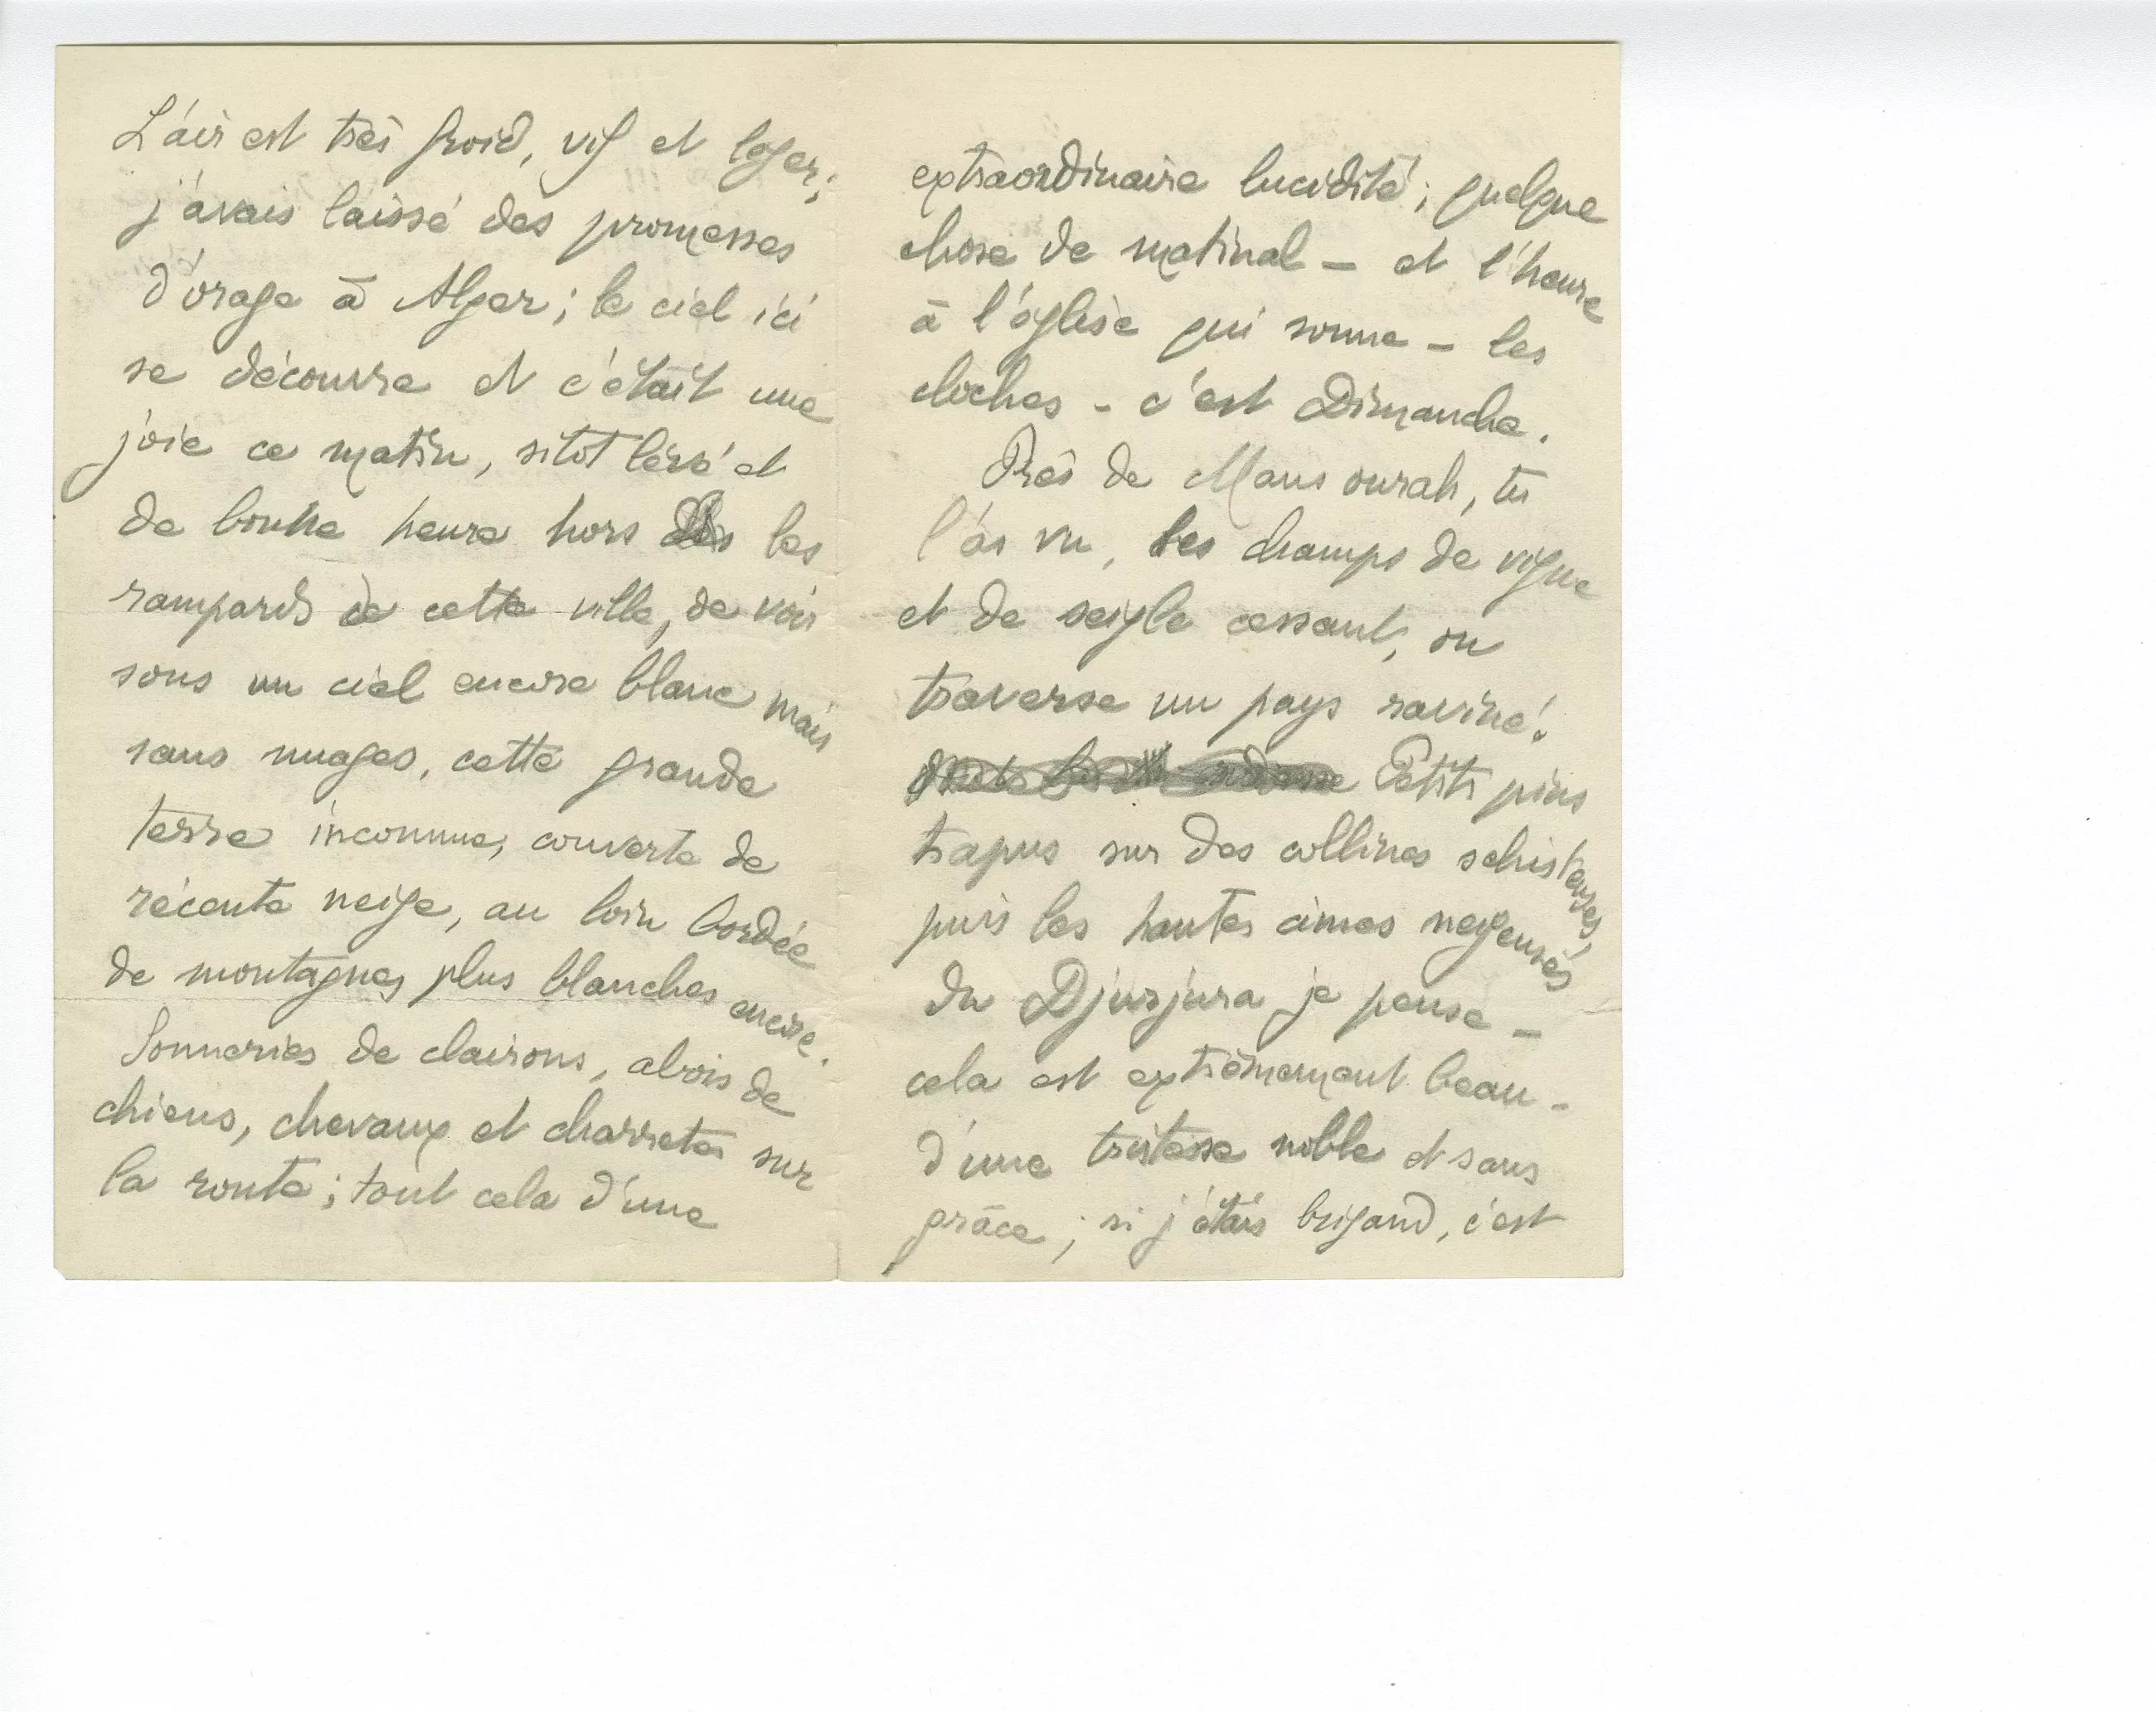 L'air est très froid, vif et leger;
j'avais laissé des promesses
d'orage à Alger; le ciel ici
se découvre et c'était une
joie ce matin, sitot levé et
de bonne heure hors les
remparts de cette ville, de voir
sous un ciel encore blanc mais
sans nuages, cette grande
terre inconnue, couverte de
récente neige, au loin bordée
de montagnes plus blanches encore.
Sonneries de clairons, abois de
chiens, chevaux et charretes sur
la route; tout cela d'une
extraordinaire lucidité; quelque
chose de matinal – et l'heure
à l'église qui sonne – les
cloches – c'est Dimanche.
Près de Mansourah, tu
l'as vu, les champs de vigne
et de seigle cessant, on
traverse un pays raviné.
Petits pins
trapus sur des collines schisteuses,
puis les hautes cimes neigeuses
du Djurjura je pense –
cela est extrêmement beau –
d'une tristesse noble et sans
grâce; si j'étais brigand, c'est